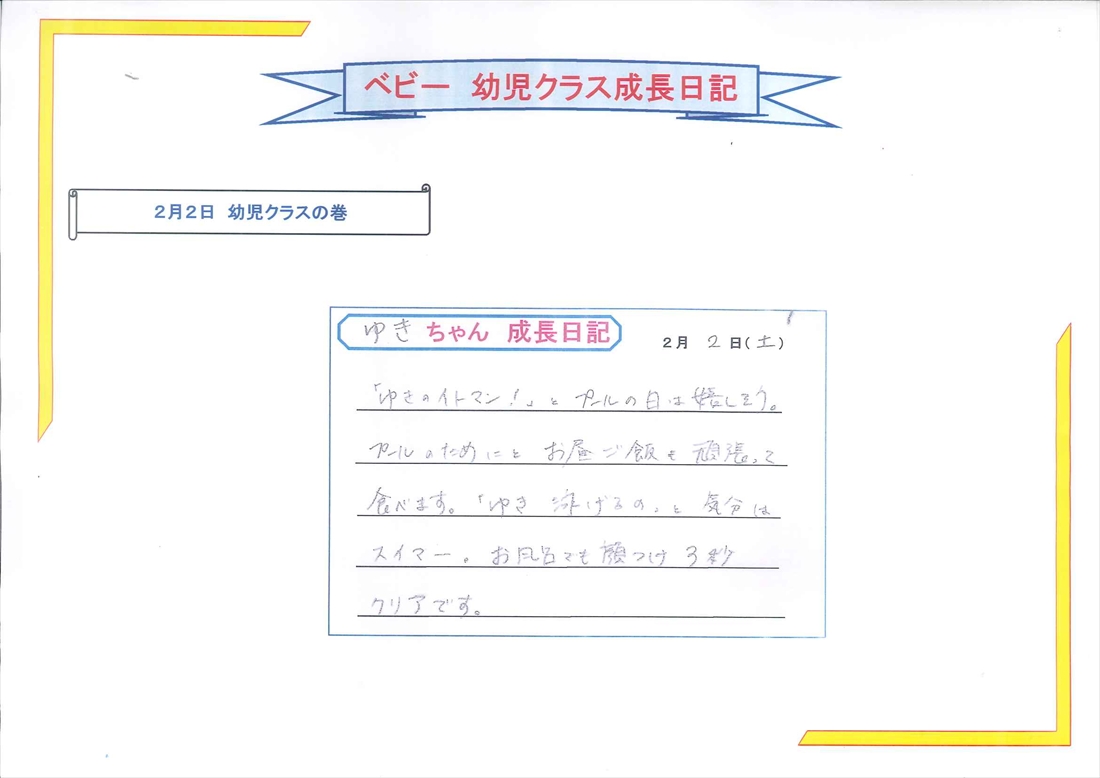 ベビー 幼児クラス成長日記
2月2日 幼児クラスの巻
ゆき ちゃん 成長日記
2月 2 日(土)
「ゆきのイトマン!」と プールの日は嬉しそう。
プールのためにと お昼ご飯も 頑張って
食べます。「ゆき 泳げるの」と 気分は
スイマー。お風呂でも顔つけ 3秒
クリアです。